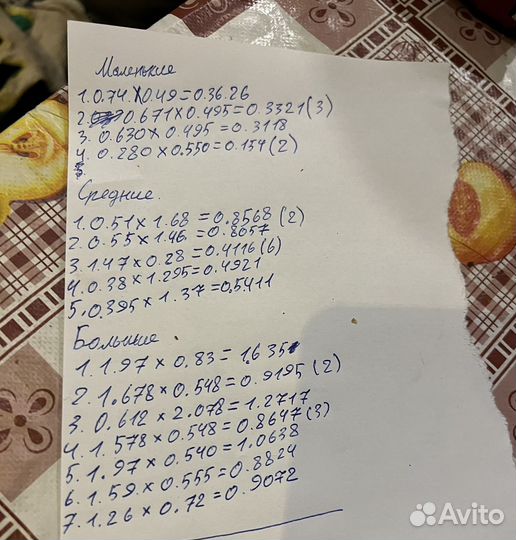 Маленькие
1. 0.74 x 0.49 = 0.36.26
2. 0.671 x 0.495 = 0.3321 (3)
3. 0.630 x 0.495 = 0.3118
4. 0.280 x 0.550 = 0.154 (2)
5.
Средние.
1. 0.51 x 1.68 = 0.8568 (2)
2. 0.55 x 1.46 = 0.8057
3. 1.47 x 0.28 = 0.4116 (6)
4. 0.38 x 1.295 = 0.4921
5. 0.395 x 1.37 = 0.5411
Большие
1. 1.97 x 0.83 = 1.635
2. 1.678 x 0.548 = 0.9195 (2)
3. 0.612 x 2.078 = 1.2717
4. 1.578 x 0.548 = 0.8647 (3)
5. 1.97 x 0.540 = 1.0638
6. 1.59 x 0.555 = 0.8824
7. 1.26 x 0.72 = 0.9072
Avito